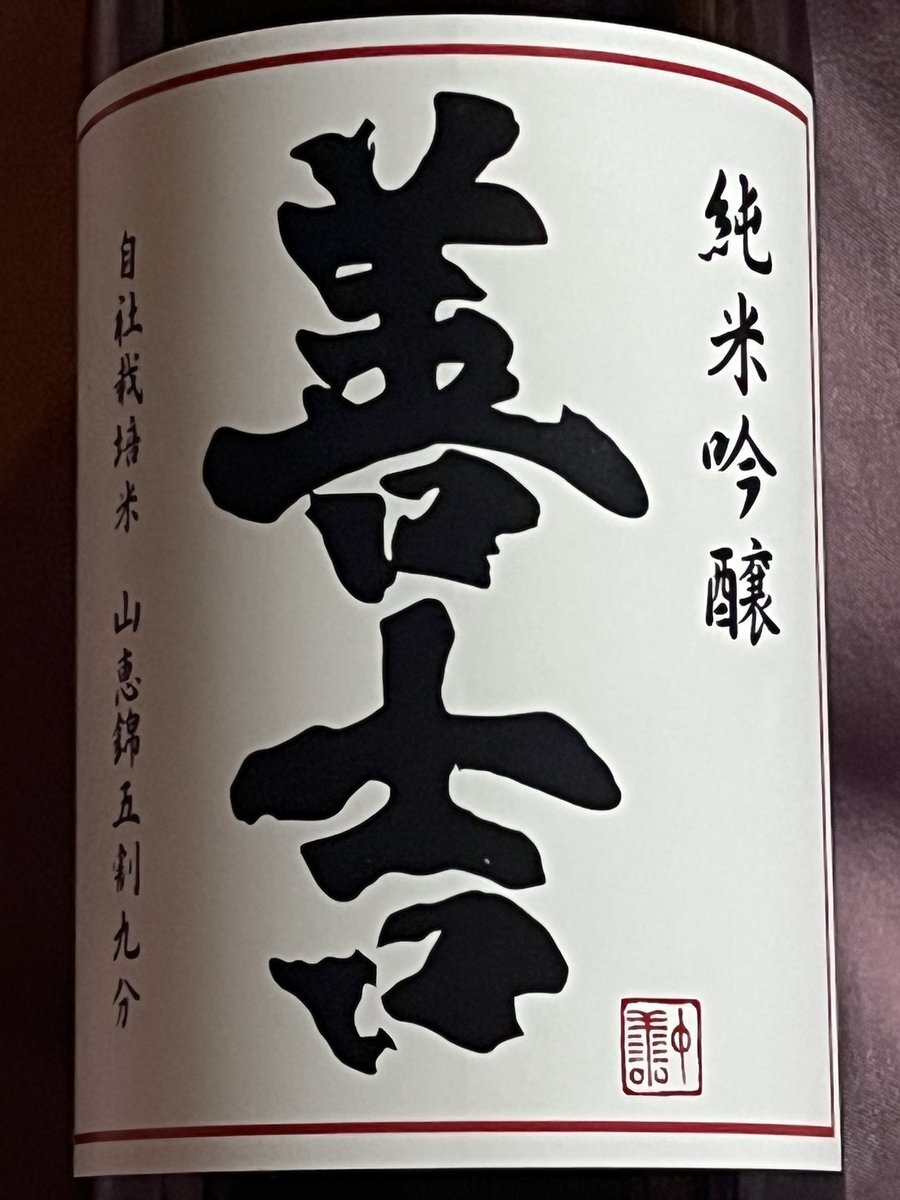 純米吟醸
善吉
自社栽培米 山恵錦五割九分